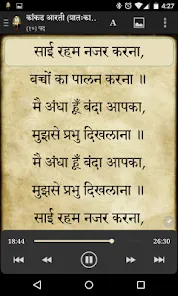 4:27
कांकड आरती (प्रातःका...
(१०) पद
A
साईं रहम नजर करना,
बचों का पालन करना ॥
मै अंधा हूँ बंदा आपका,
मुझसे प्रभु दिखलाना ॥
मै अंधा हूँ बंदा आपका,
मुझसे प्रभु दिखलाना ॥
साईं रहम नजर करना,
18:44 26:30